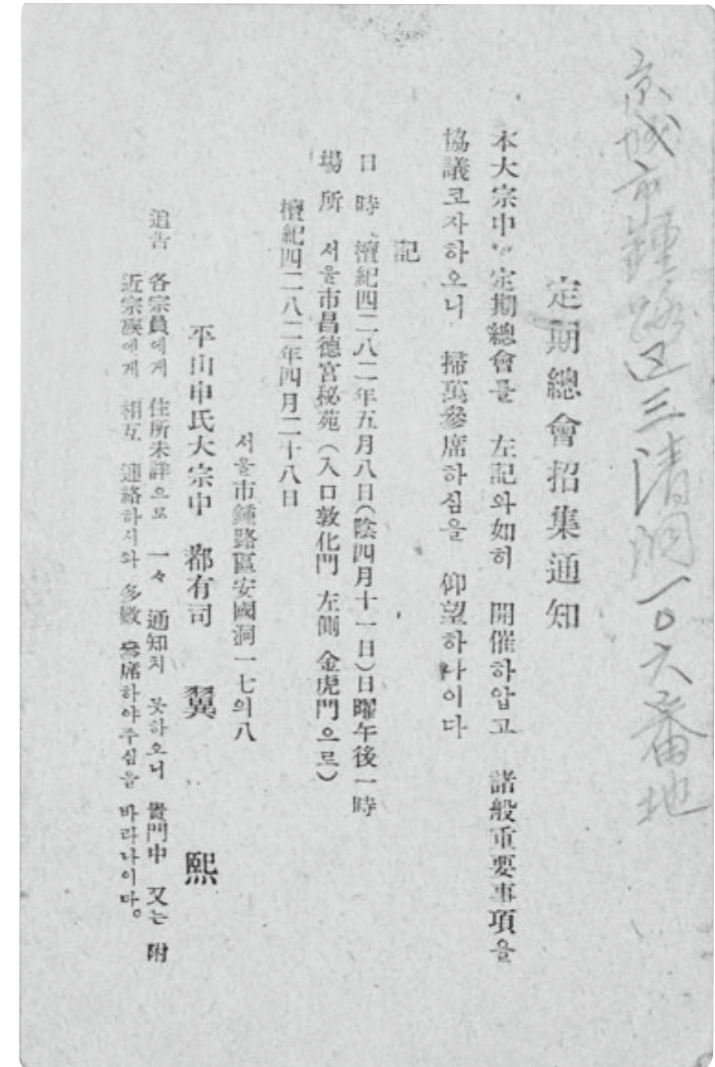 京城市鍾路区三淸洞一0六番地
定期總會招集通知
本大宗中 定期總會를 左記와如히 開催하압고 諸般重要事項을
協議코자하오니 掃萬參席하심을 仰望하나이다
記
日時、檀紀四二八二年五月八日(陰四月十一日)日曜午後一時
場所 서울市昌德宮秘苑(入口敦化門 左側 金虎門으로)
檀紀四二八二年四月二十八日
서울市鍾路區安國洞一七의八
平山申氏大宗中 都有司 翼熙
追告 各宗員에게 住所未詳으로 一々 通知치 못하오니 貴門中 又는 附
近宗族에게 相互 連絡하시와 多數 參席하야주심을 바라나이다。